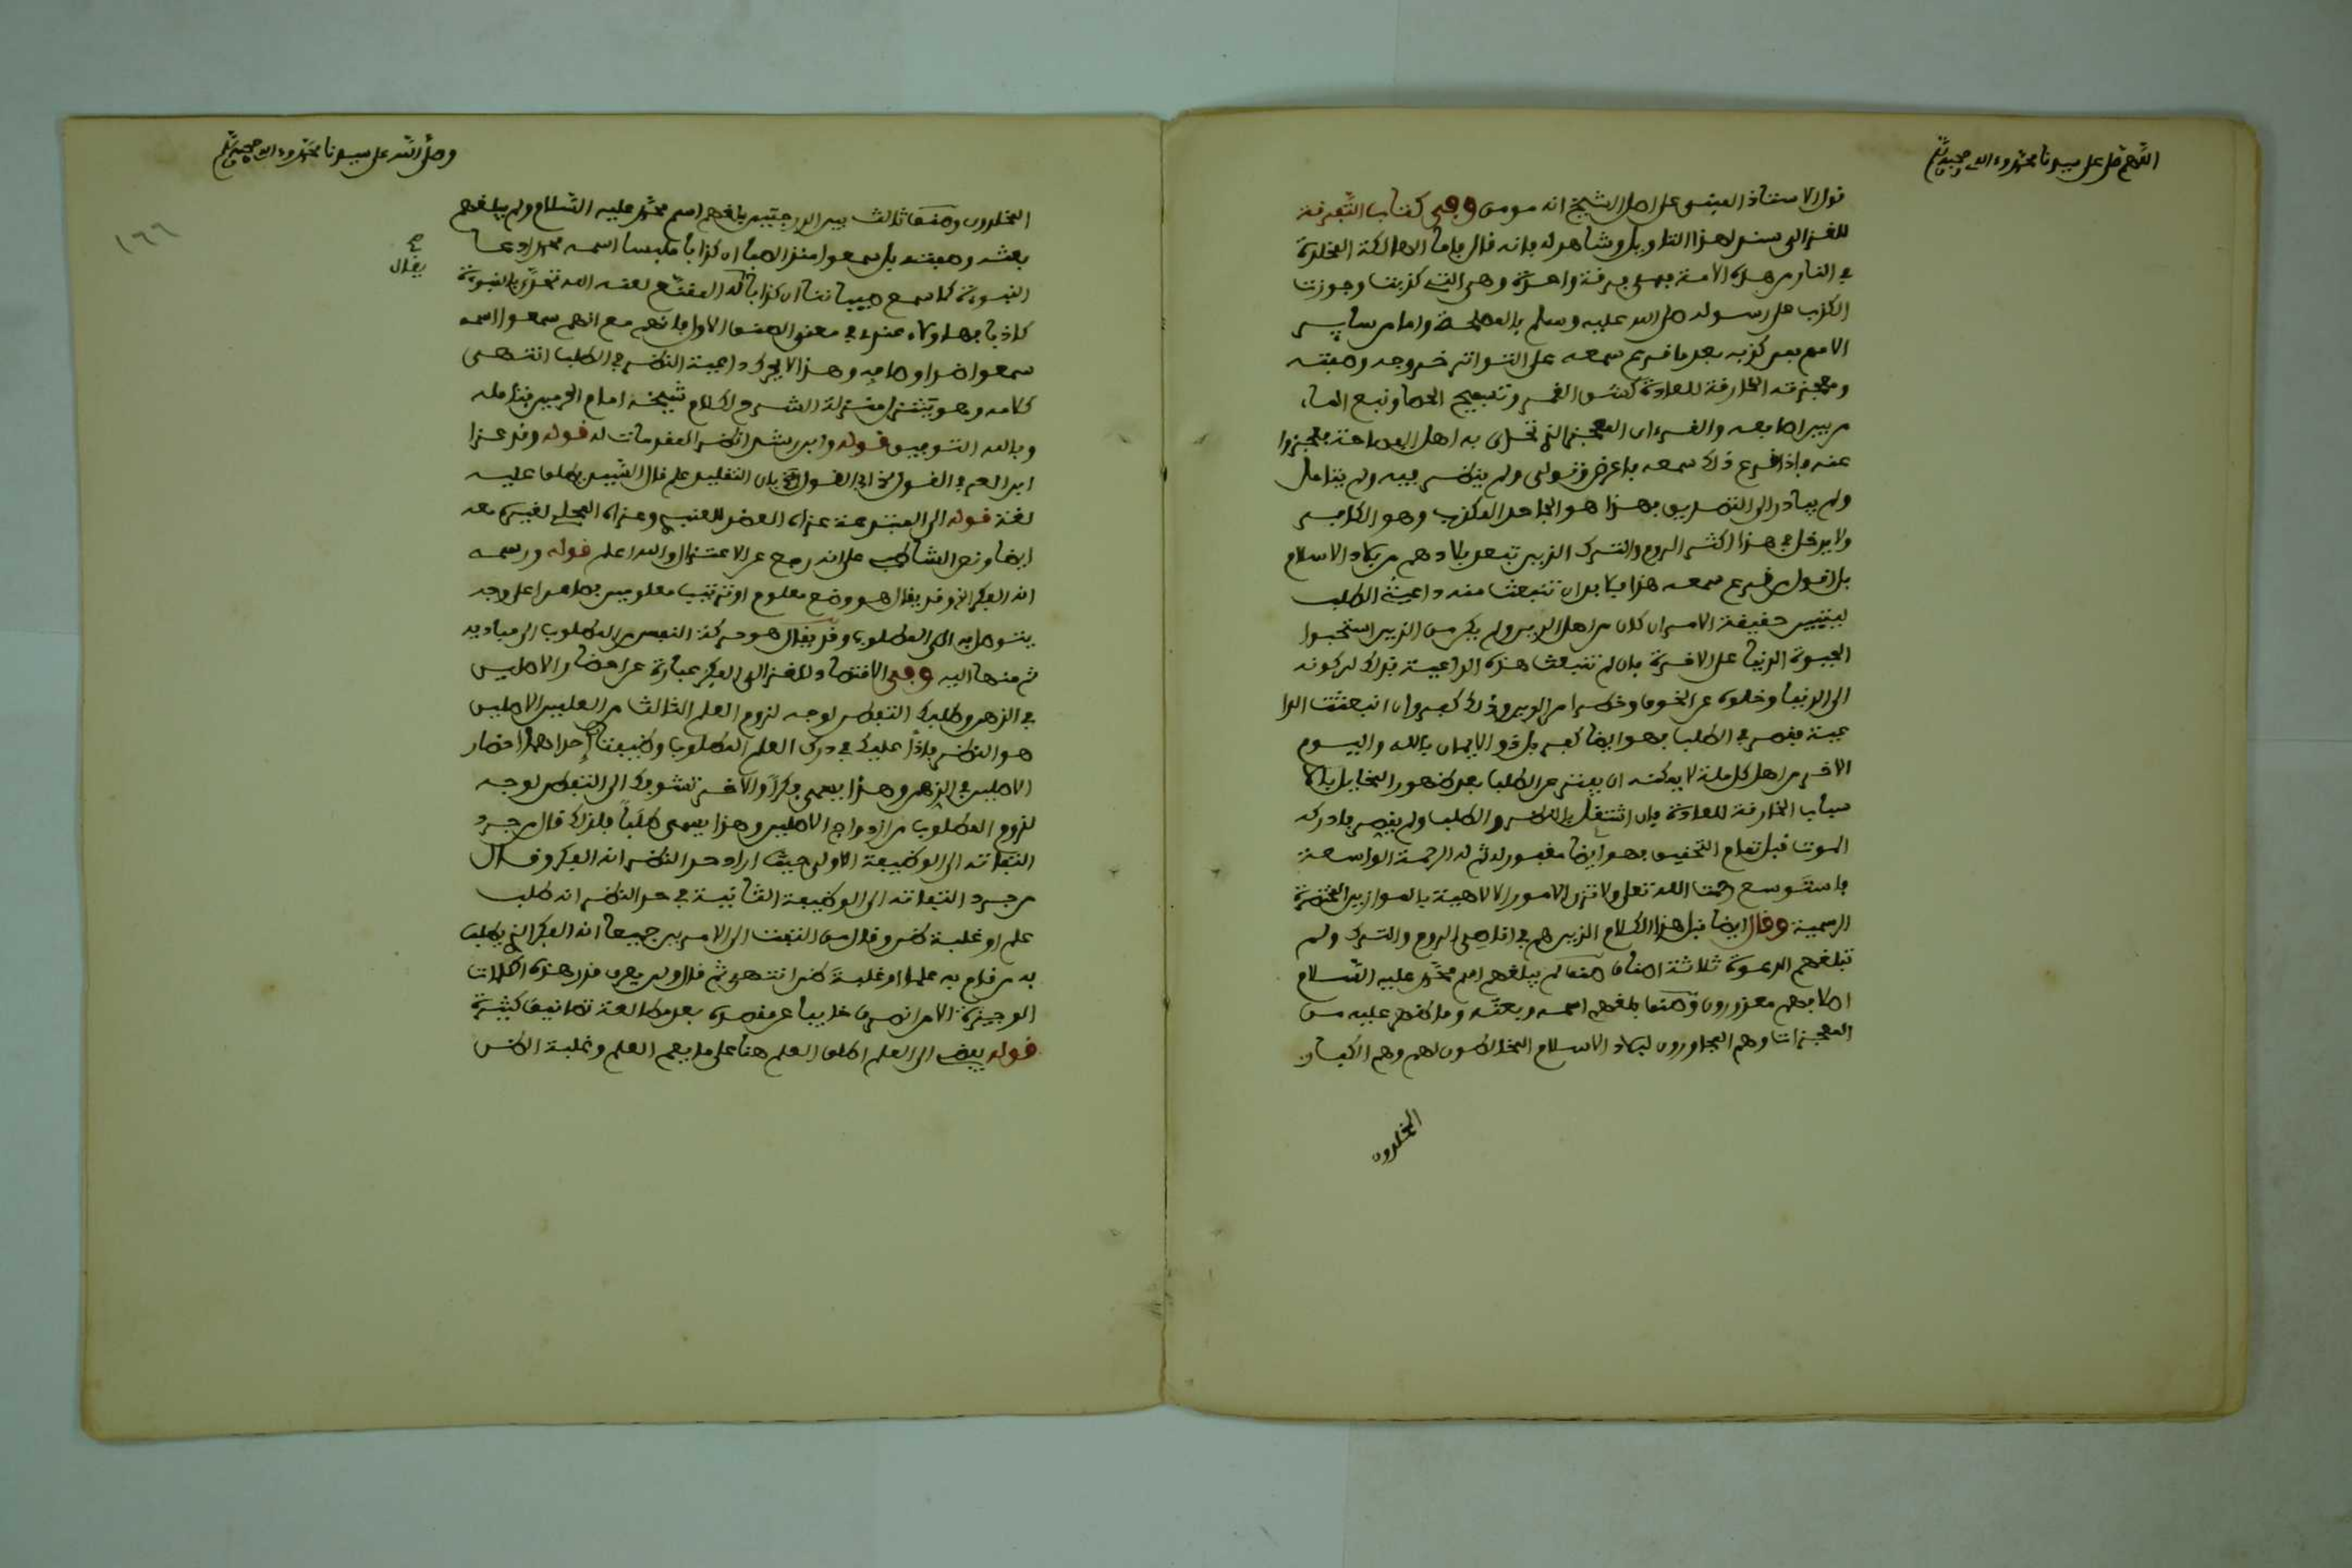 اللهم صل على سيدنا محمد وءاله وصحبه وسلم
قول الاستاذ المبنى على اصل الشيخ انه مومن وفى كتاب التفرقة
للغزالى سند لهذا التاويل وشاهد له فانه قال فاما الهالكة المخلدة
في النار من هذه الامة فهى فرقة واحدة وهى التي كذبت وجوزت
الكذب على رسول الله صلى الله عليه وسلم بالمصلحة واما من ساير
الامم فمن كذبه بعد ما قرع سمعه على التواتر خروجه وصفته
ومعجزته الخارقة للعادة كشق القمر وتسبيح الحصا ونبع الماء
من بين اصابعه والقرءان المعجز الذي تحدى به اهل الفصاحة فعجزوا
عنه فاذا قرع ذلك سمعه فاعرض وتولى ولم ينظر فيه ولم يتامل
ولم يبادر الى التصديق فهذا هو الجاحد المكذب وهو الكافر
ولا يدخل في هذا اكثر الروم والترك الذين تبعد بلادهم من بلاد الاسلام
بل اقول من قرع سمعه هذا فلا بد ان تنبعث منه داعية الطلب
ليتبين حقيقة الامر ان كان من اهل الدين ولم يكن من الذين استحبوا
الحيوة الدنيا على الاخرة فان لم تنبعث هذه الداعية فذلك لركونه
الى الدنيا وخلوه عن الخوف وخطر امر الدين وذلك كفر وان انبعثت الدا
عية فقصر في الطلب فهو ايضا كفر بل ذو الايمان بالله واليوم
الاخر من اهل كل ملة لا يمكنه ان يفتر عن الطلب بعد ظهور المخايل بالا
سباب الخارقة للعادة فان اشتغل بالنظر والطلب ولم يقصر فادركه
الموت قبل تمام التحقيق فهو ايضا مغفور له ثم له الرحمة الواسعة
فاستوسع رحمت الله تعلى ولا تزن الامور الالاهية بالموازين المختصرة
الرسمية وقال ايضا قبل هذا الكلام الذين هم في اقاصى الروم والترك ولم
تبلغهم الدعوة ثلاثة اصناف صنف لم يبلغهم اسم محمد عليه السلام
اصلا فهم معذورون وصنف بلغهم اسمه وبعثه وما ظهر عليه من
المعجزات وهم المجاورون لبلاد الاسلام المخالطون لهم وهم الكفار
المخلدون
وصلى الله على سيدنا محمد وءاله وصحبه وسلم
١٦٦
المخلدون وصنف ثالث بين الدرجتين بلغهم اسم محمد عليه السلام ولم يبلغهم
بعثه وصفته بل سمعوا منذ الصبا ان كذابا ملبسا اسمه محمد ادعا
النبوة كما سمع صبياننا ان كذابا يقال له المقفع لعنه الله تحدى بالنبوة
كاذبا فهاولاء عندى في معنى الصنف الاول فانهم مع انهم سمعوا اسمه
سمعوا ضد اوصافه وهذا لا يحرك داعية النظر في الطلب انتهى
كلامه وهو يتنزل منزلة الشرح لكلام شيخه امام الحرمين فتامله
وبالله التوفيق قوله وابن رشد انظر المقدمات له قوله وقد عزا
لغة قوله الى المبتدعة عزاه العضد للعنبرى وعزاه المحلى لغيره معه
ايضا ونص الشاطبى على انه رجع عن الاعتزال والله اعلم قوله ورسمه
انه الفكر الخ وقد يقال هو وضع معلوم او ترتيب معلومين فصاعدا على وجه
يتوصل به الى المطلوب وقد يقال هو حركة النفس من المطلوب الى مباديه
ثم منها اليه وفى الاقتصاد للغزالى الفكر عبارة عن احضار الاصلين
في الذهن وطلبك التفطن لوجه لزوم العلم الثالث من العلمين الاصلين
هو النظر فاذًا عليك في درك العلم المطلوب وظيفتان إحداهما احضار
الاصلين في الذهن وهذا يسمى فكرًا والاخر تشوفك الى التفطن لوجه
لزوم المطلوب من ازدواج الاصلين وهذا يسمى طلبًا فلذلك قال من جرد
التفاته الى الوظيفة الاولى حيث اراد حد النظر انه الفكر وقال
من جرد التفاته الى الوظيفة الثانية في حد النظر انه طلب
علم او غلبة ظن وقال من التفت الى الامرين جميعا انه الفكر الذي يطلب
به من قام به علما او غلبة ظن انتهى ثم قال ولن يعرف قدر هذه الكلمات
الوجيزة الا من انصرف خايبا عن مقصده بعد مطالعة تصانيف كثيرة
قوله يفضى الى العلم اطلق العلم هنا على ما يعم العلم وغلبة الظن
يقال